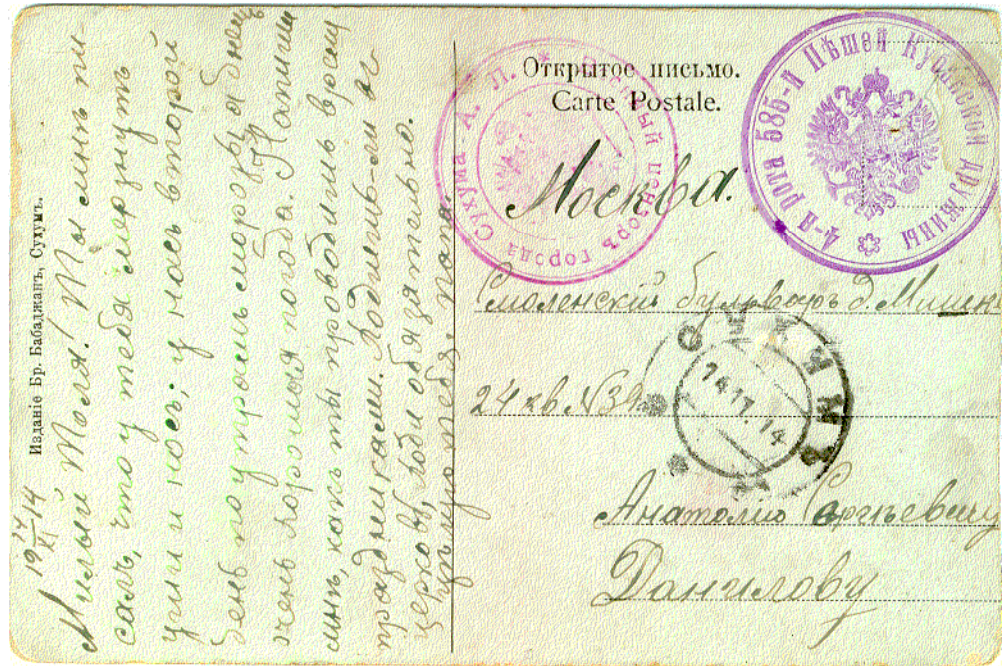 Изданіе Бр. Бабаджанъ, Сухумъ.
19 17/XI 14
Милый Толя! Ты мнѣ пи-
салъ, что у тебя мерзнутъ
уши и носъ; у насъ второй
день по утрамъ морозы, а днемъ
очень хорошая погода. Напиши
мнѣ, какъ ты проводишь время
праздниками. Ходишь-ли въ
церковь, ходи обязательно.
Цѣлую тебя. Папа.
Открытое письмо.
Carte Postale.
Военный цензоръ города Сухума. А. П.
4-я рота 585-й Пѣшей Кубанской дружины
Москва.
Смоленскій бульваръ д. Мишин
24 кв. N 39
СУХУМЪ
14.11.14
Анатолію Сергѣевичу
Данилову